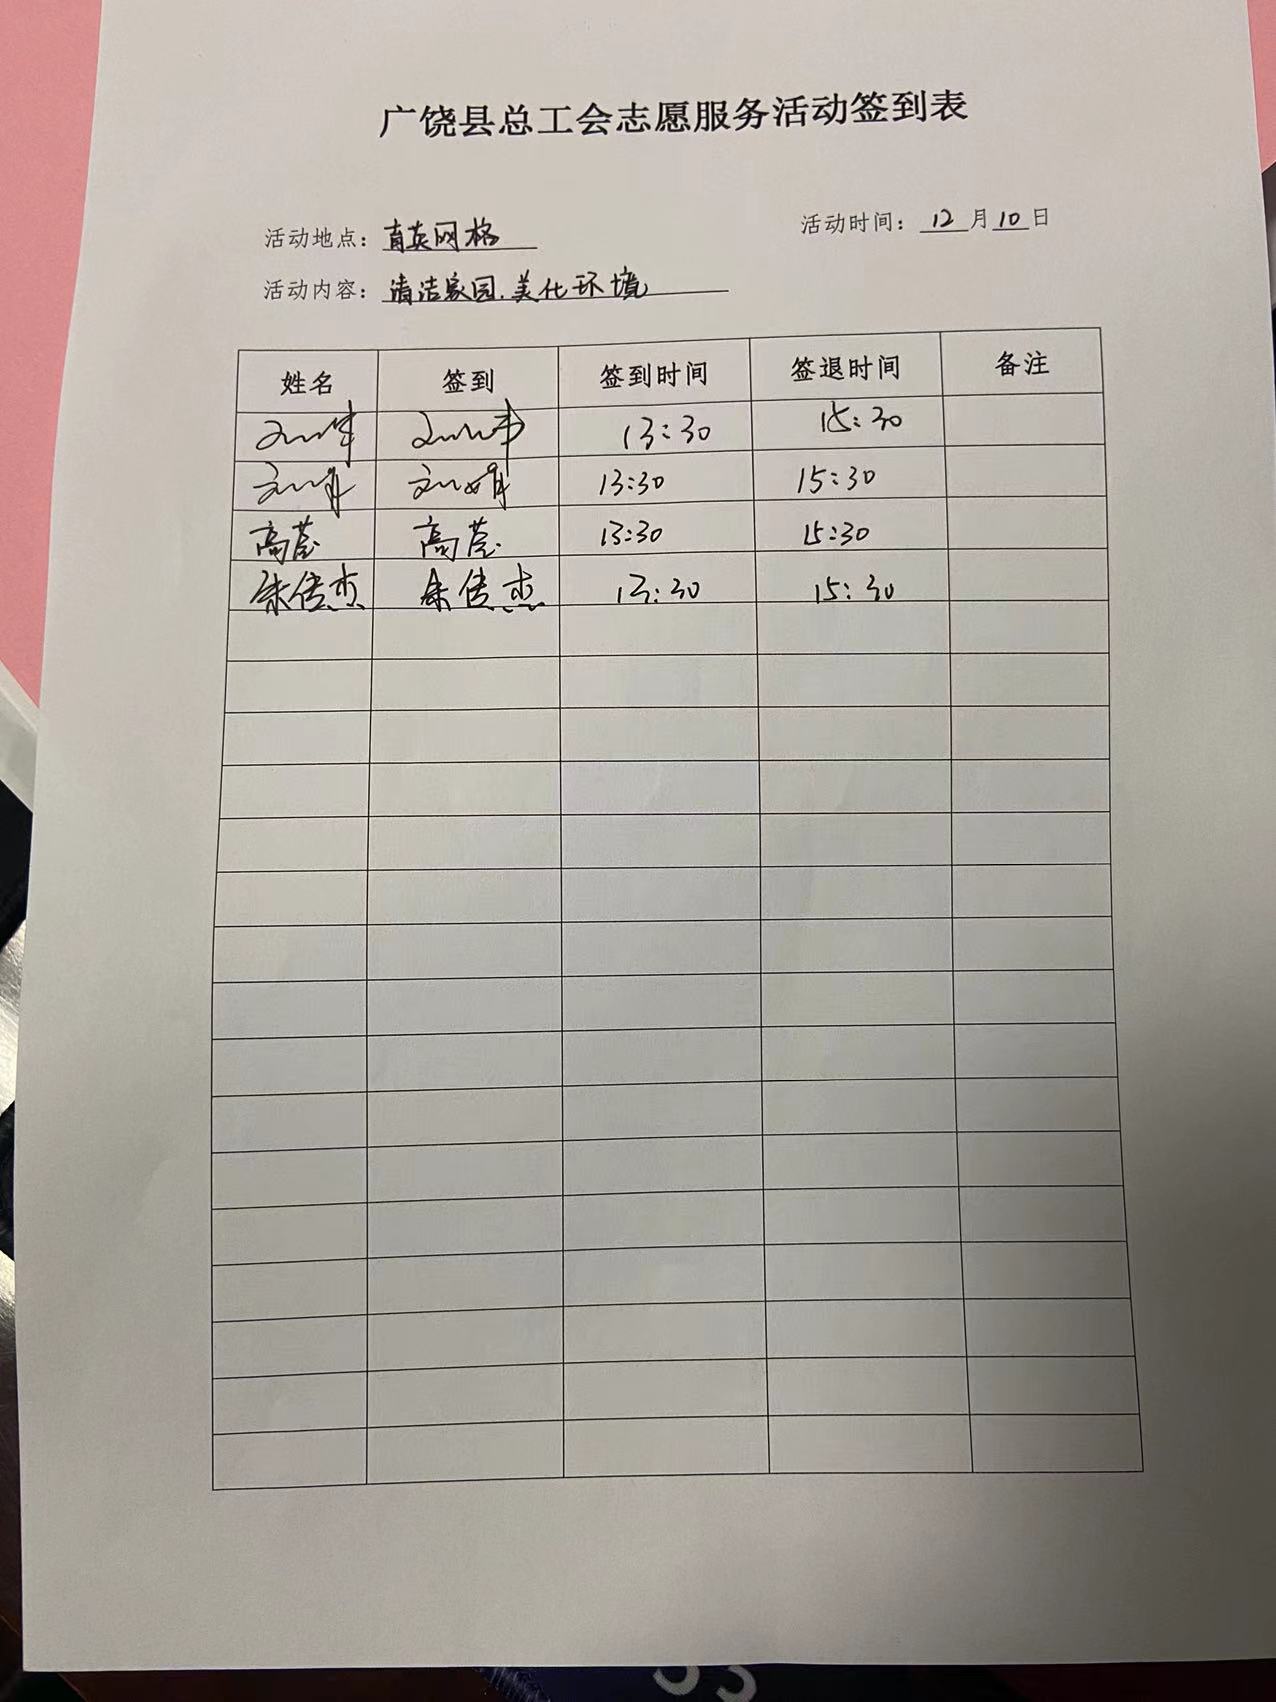 广饶县总工会志愿服务活动签到表
活动地点：育英网格 活动时间：12月10日
活动内容：清洁家园.美化环境
姓名 签到 签到时间 签退时间 备注
13:30 15:30
刘 刘娟 13:30 15:30
高莹 高莹 13:30 15:30
朱传杰 朱传杰 13:30 15:30
53